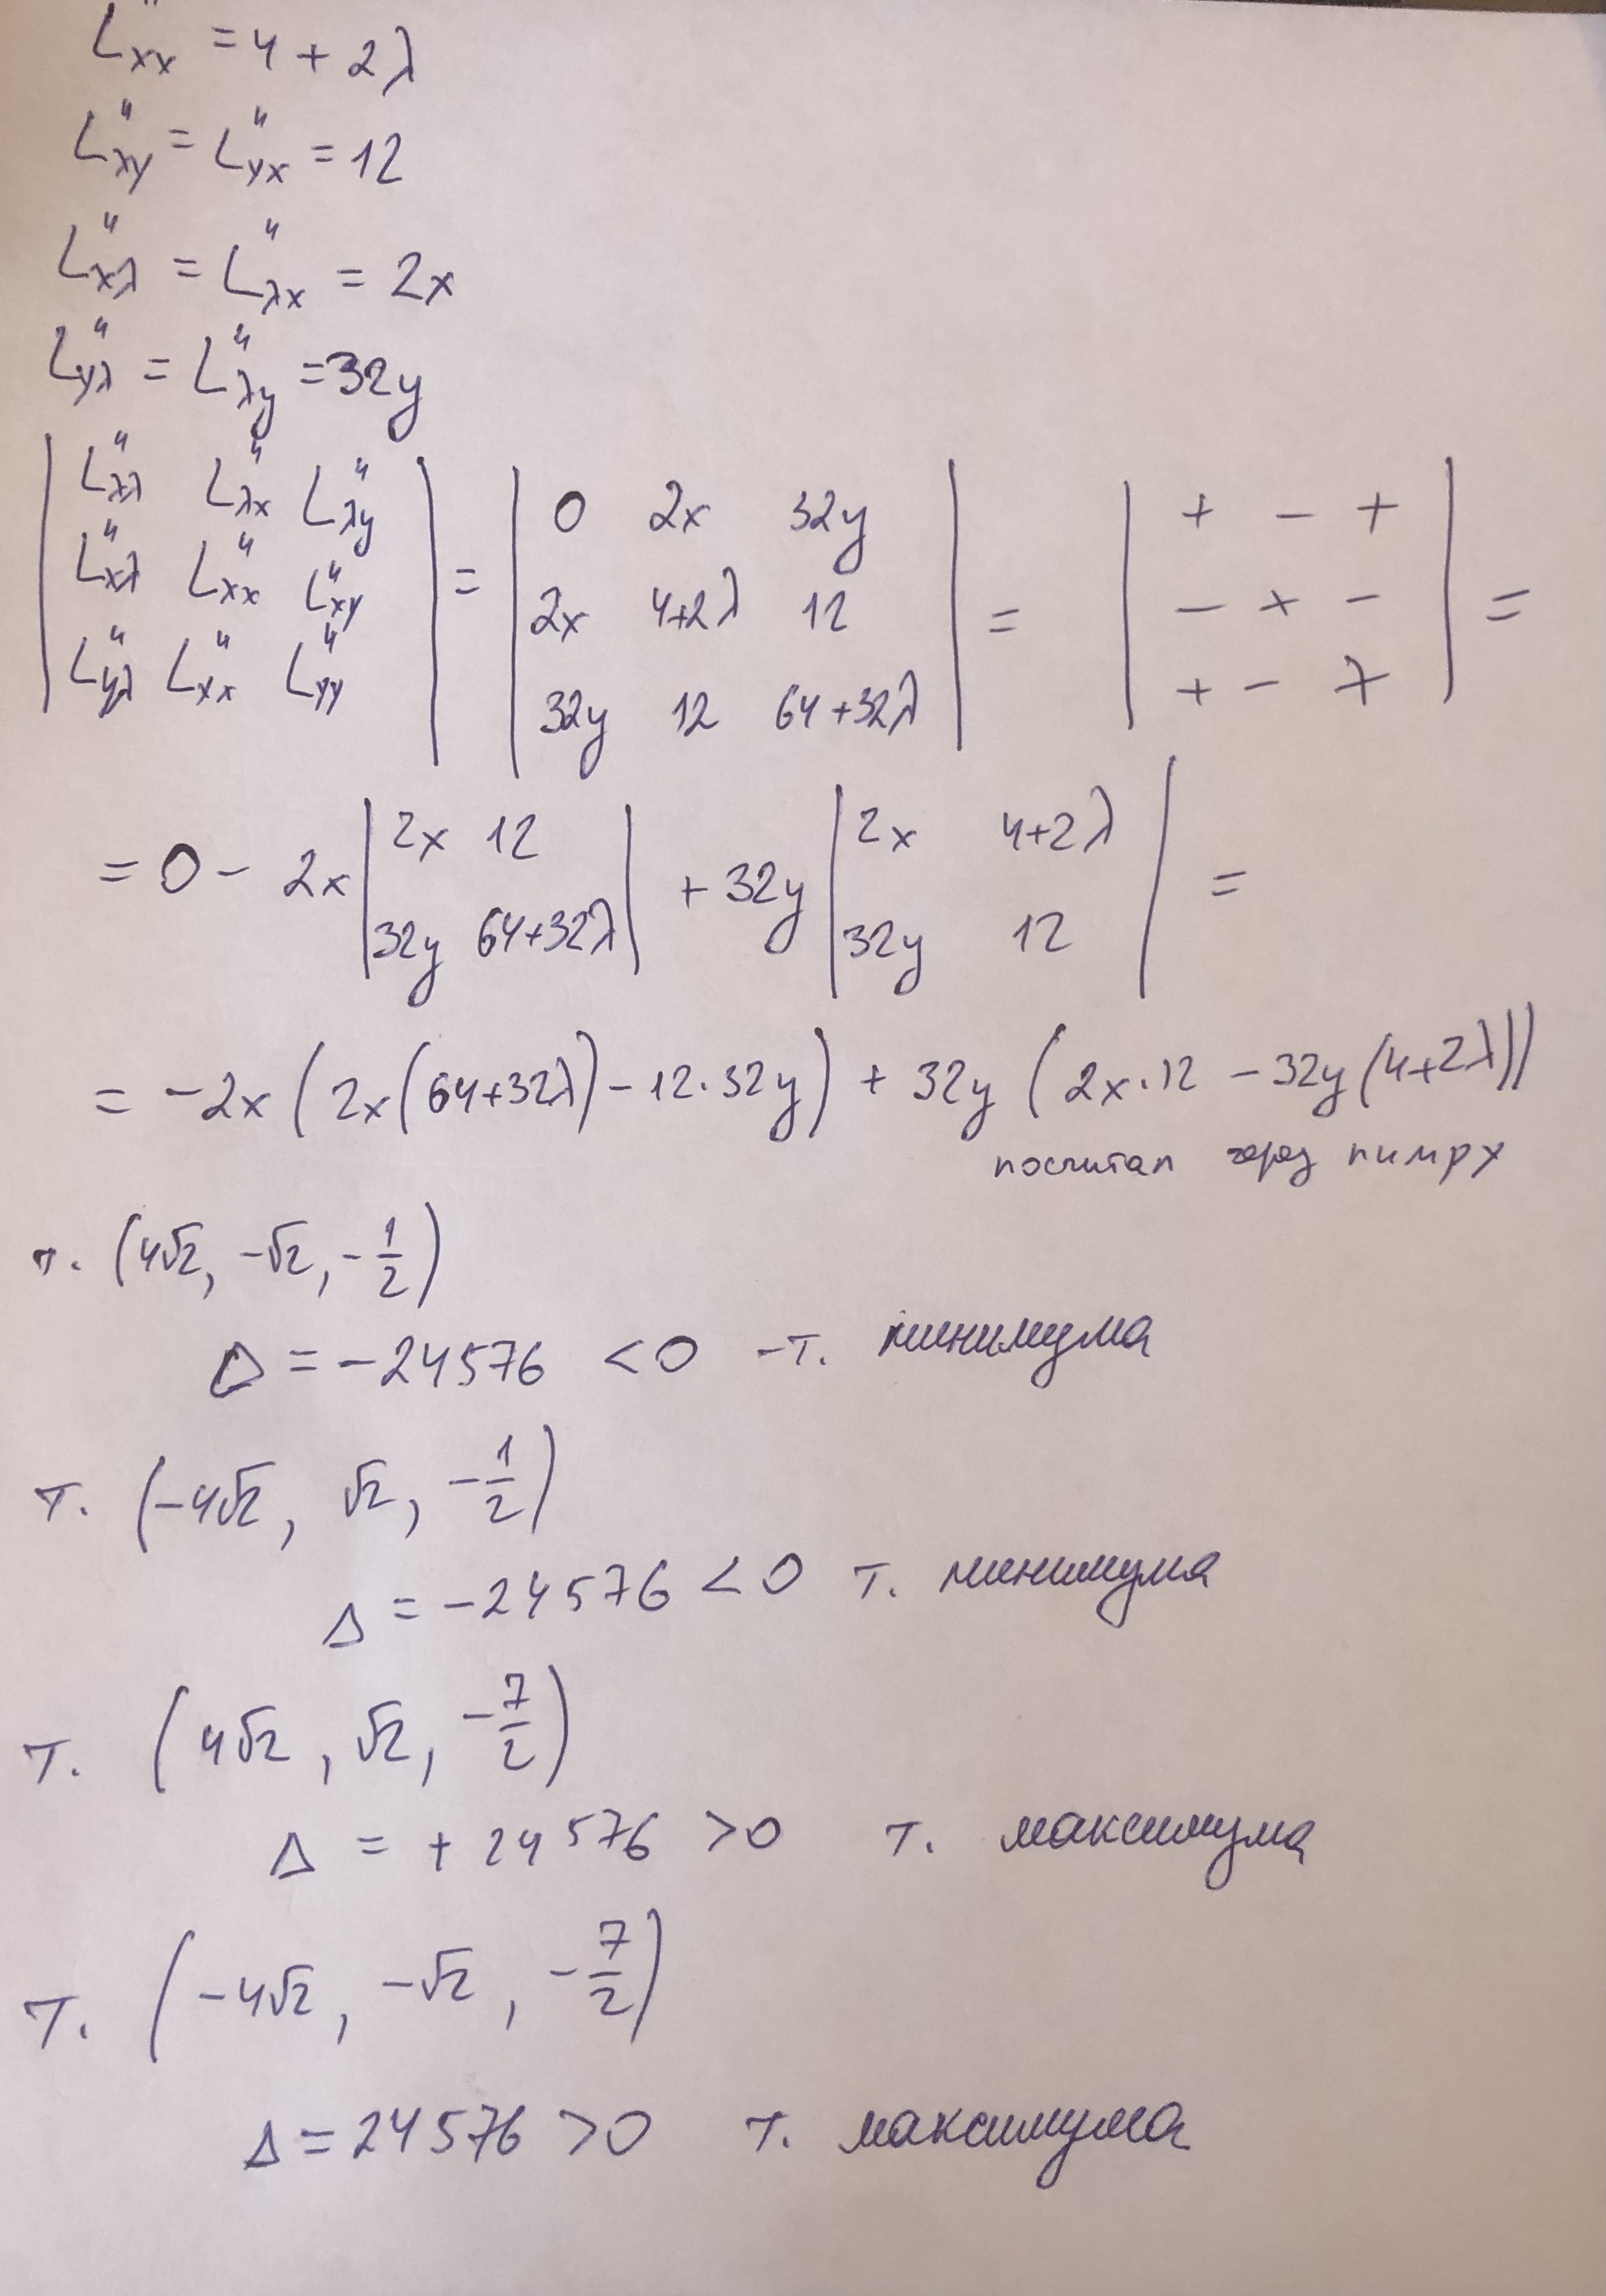 L''xx = 4 + 2λ
L''xy = L''yx = 12
L''xλ = L''λx = 2x
L''yλ = L''λy = 32y
| L''λλ L''λx L''λy | = | 0 2x 32y | = | + − + | =
| L''xλ L''xx L''xy | | 2x 4+2λ 12 | | − + − |
| L''yλ L''xx L''yy | | 32y 12 64+32λ | | + − + |
= 0 − 2x | 2x 12 | + 32y | 2x 4+2λ | =
| 32y 64+32λ | | 32y 12 |
= −2x (2x(64+32λ) − 12·32y) + 32y (2x·12 − 32y(4+2λ))
посчитал через numpy
т. (4√2, −√2, −1/2)
Δ = −24576 < 0 − т. минимума
т. (−4√2, √2, −1/2)
Δ = −24576 < 0 т. минимума
т. (4√2, √2, −7/2)
Δ = + 24576 > 0 т. максимума
т. (−4√2, −√2, −7/2)
Δ = 24576 > 0 т. максимума